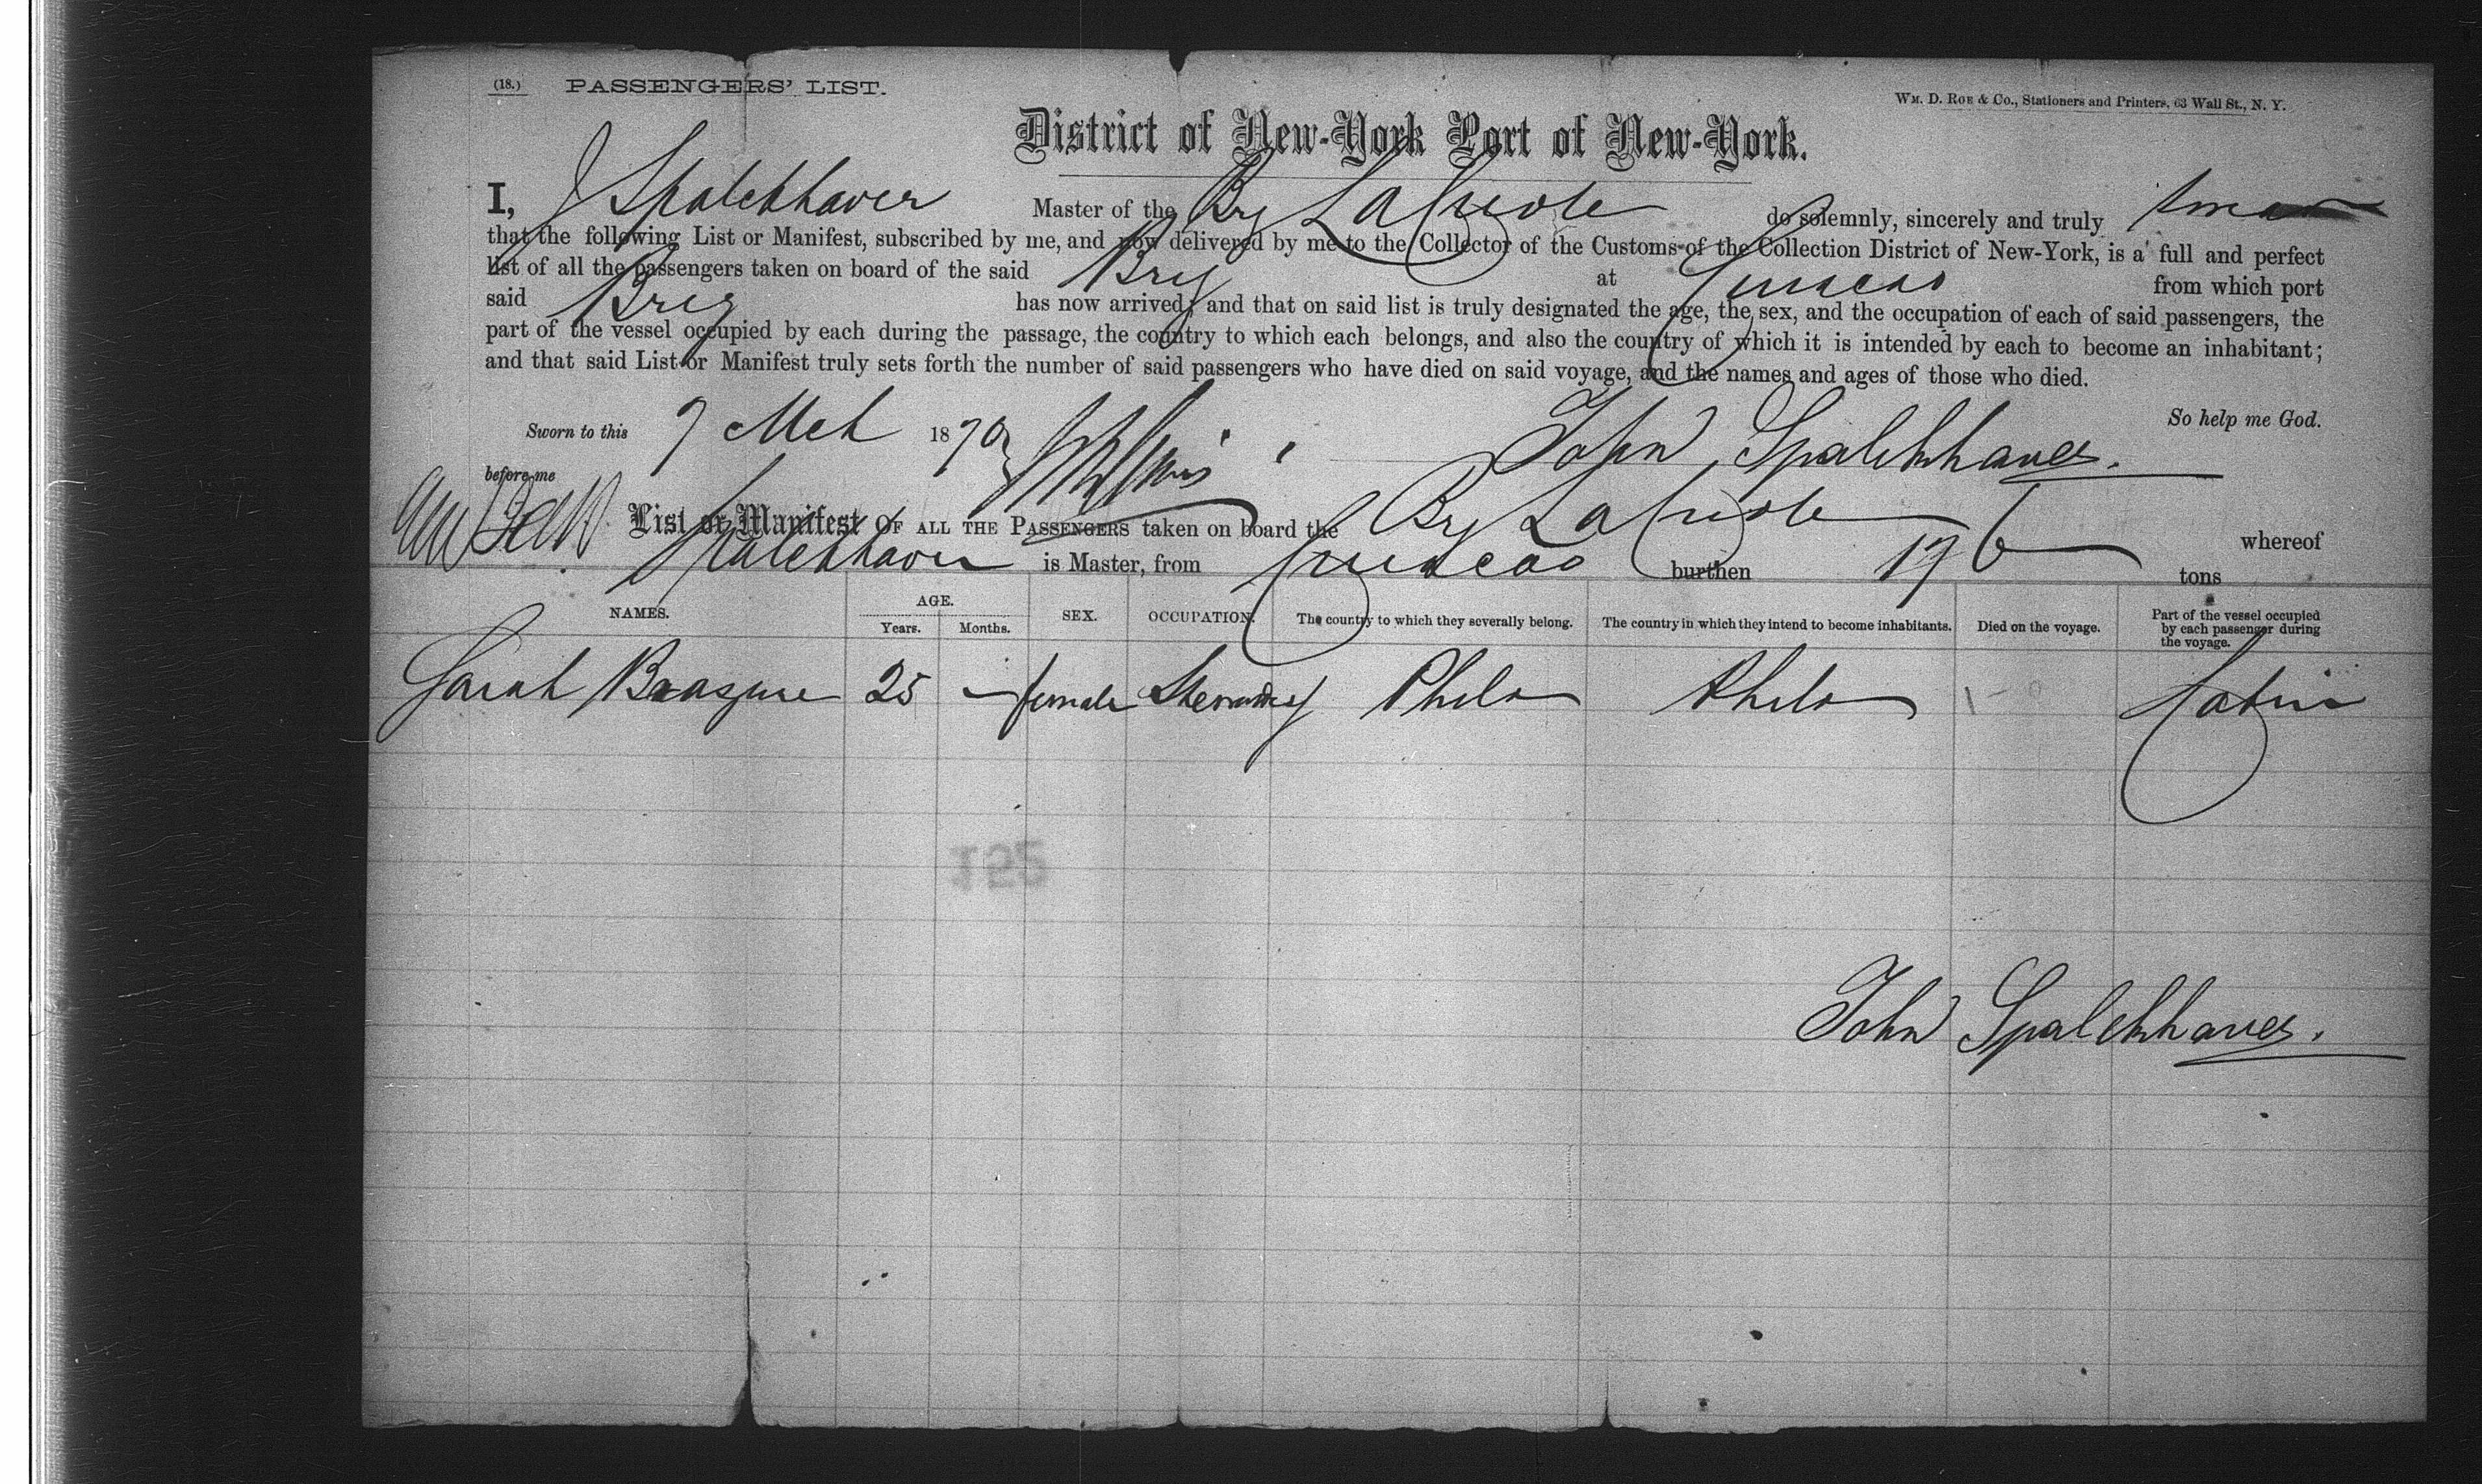 (18.) PASSENGERS' LIST.
Wm. D. Roe & Co., Stationers and Printers, 63 Wall St., N. Y.
District of New-York Port of New-York.
I, J Spalckhaver Master of the Brg La Creole do solemnly, sincerely and truly swear
that the following List or Manifest, subscribed by me, and now delivered by me to the Collector of the Customs of the Collection District of New-York, is a full and perfect
list of all the passengers taken on board of the said Brig at Curacao from which port
said Brig has now arrived; and that on said list is truly designated the age, the sex, and the occupation of each of said passengers, the
part of the vessel occupied by each during the passage, the country to which each belongs, and also the country of which it is intended by each to become an inhabitant;
and that said List or Manifest truly sets forth the number of said passengers who have died on said voyage, and the names and ages of those who died.
So help me God.
Sworn to this 7 Mch 187 John Spalckhaver.
before me
List or Manifest OF ALL THE PASSENGERS taken on board the Brg La Creole whereof
Spalckhaver is Master, from Curacao burthen 196 tons
NAMES. AGE. Years. Months. SEX. OCCUPATION. The country to which they severally belong. The country in which they intend to become inhabitants. Died on the voyage. Part of the vessel occupied by each passenger during the voyage.
Sarah 25 - female Stewardess Phila Phila Cabin
195
John Spalckhaver.